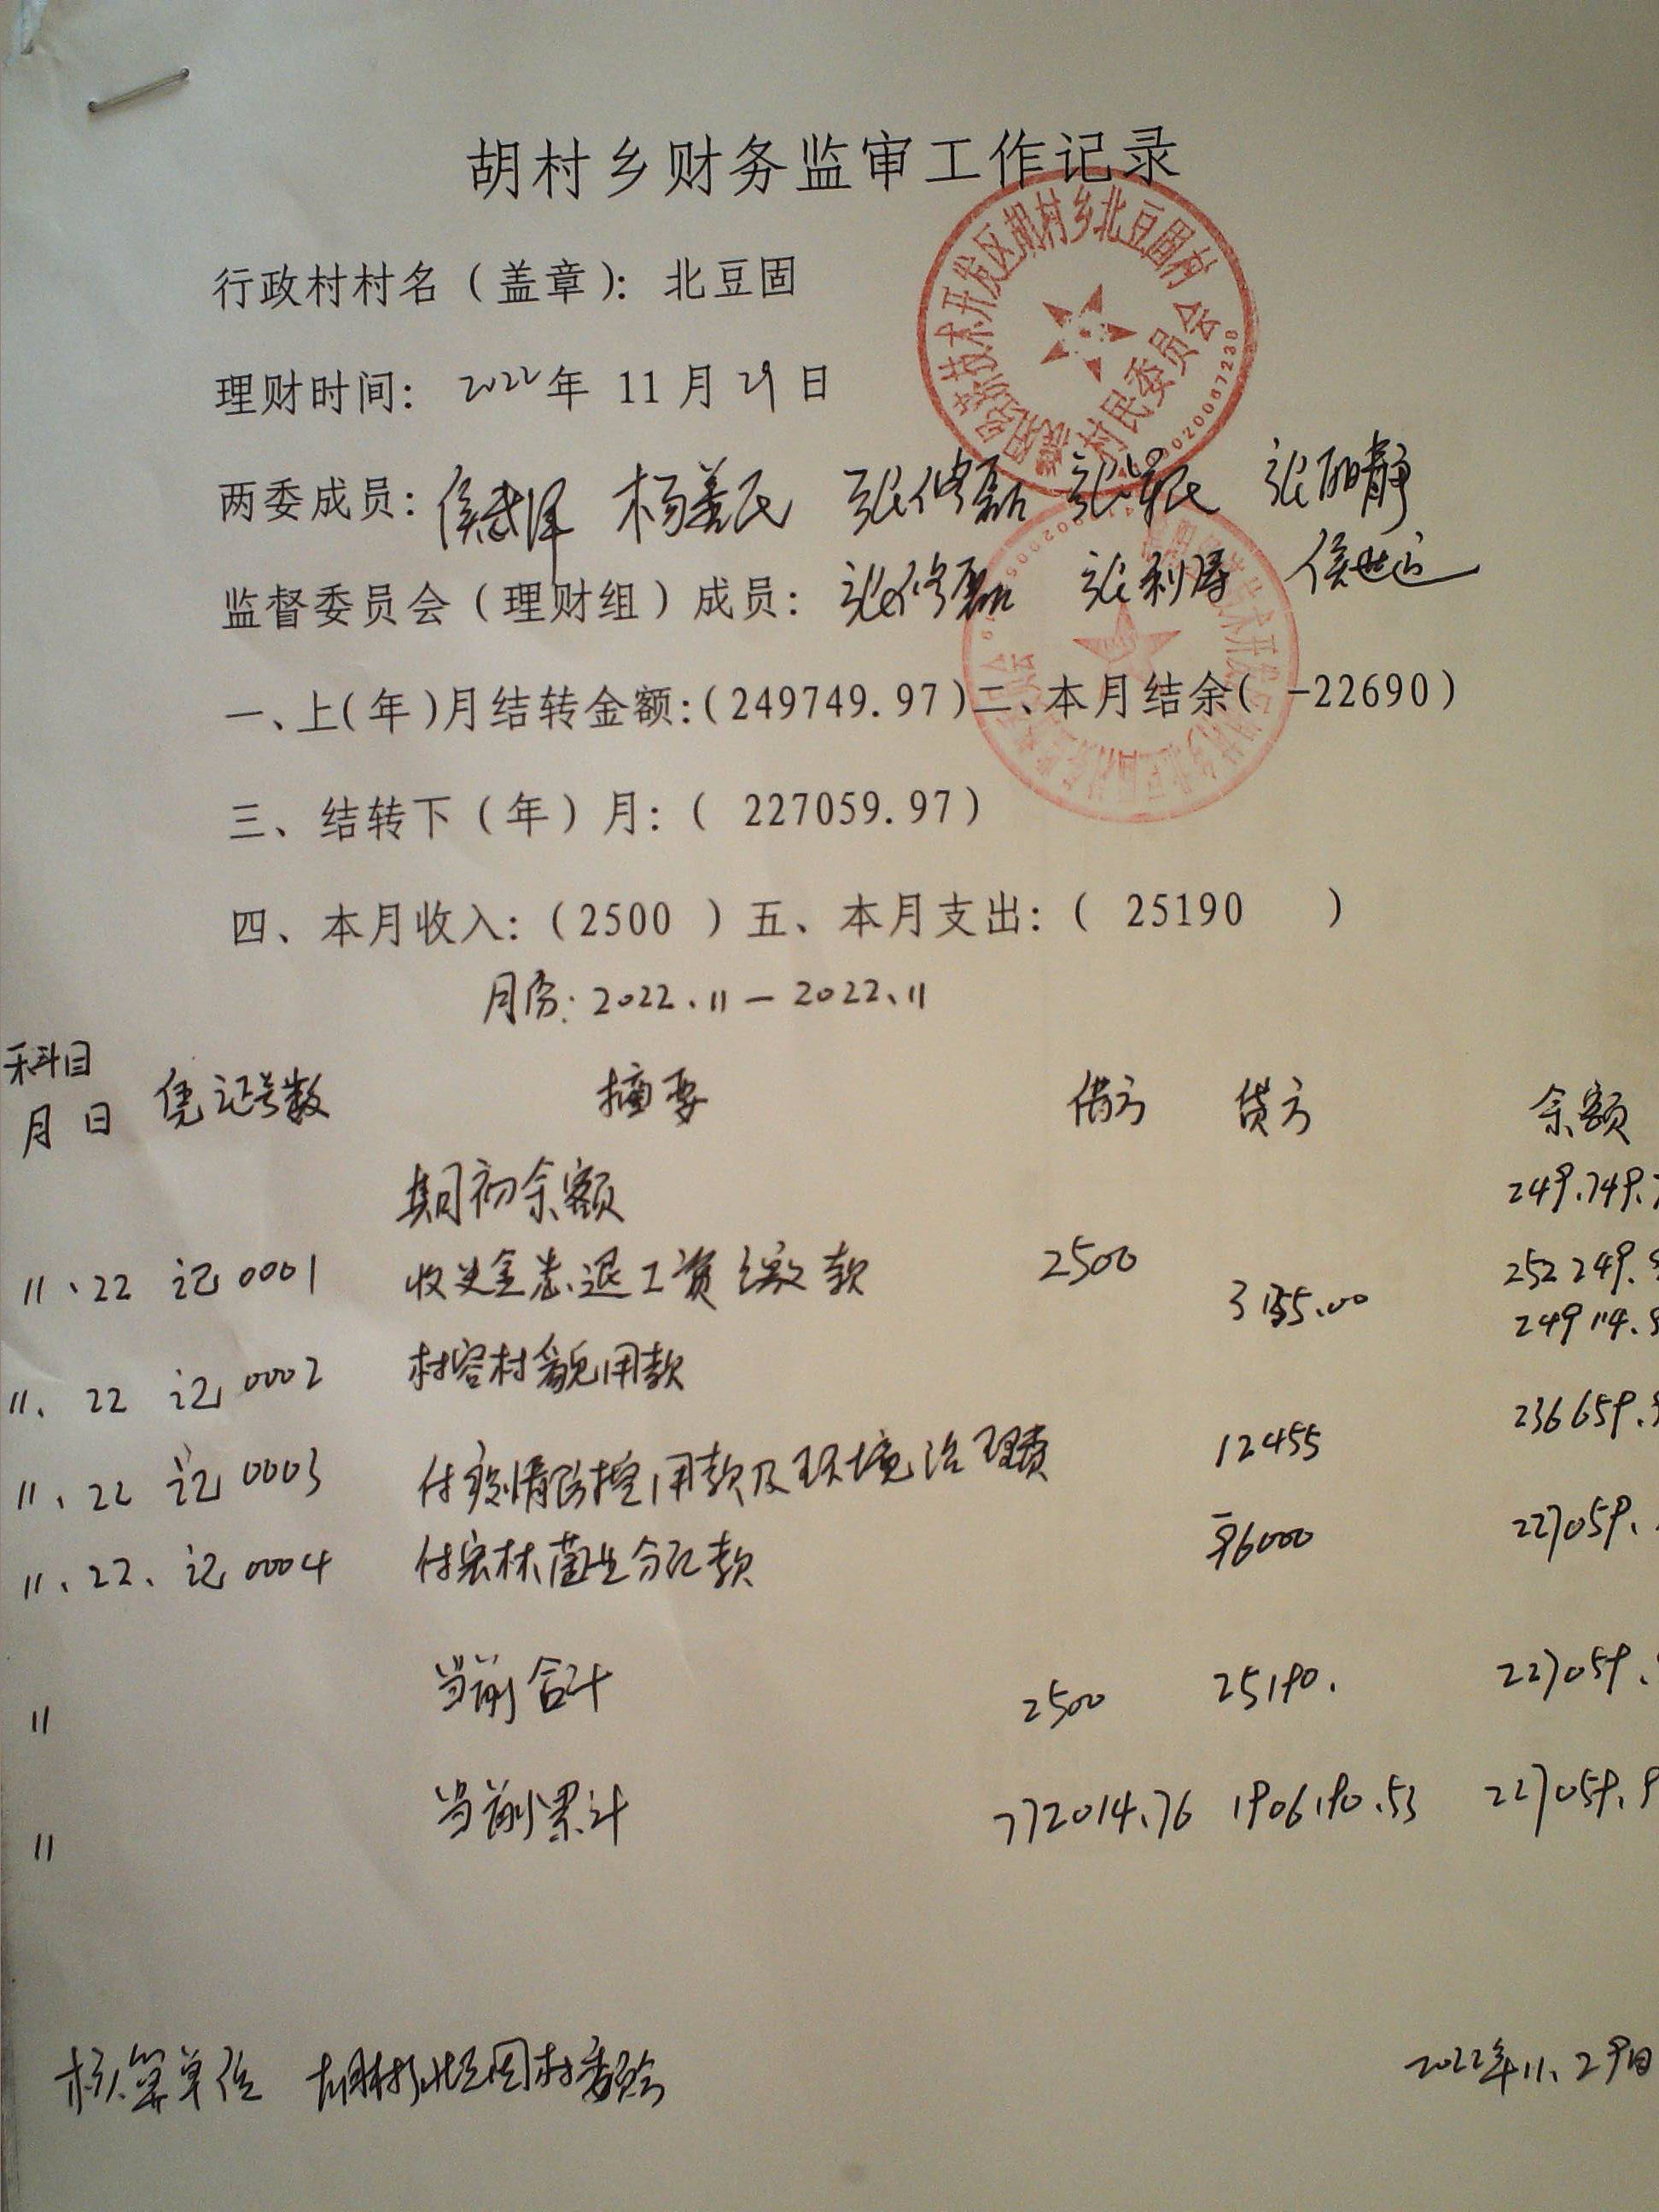 胡村乡财务监审工作记录
行政村村名（盖章）：北豆固
理财时间： 2022年 11月29日
两委成员： 杨善民 张修磊 张丽静
监督委员会（理财组）成员： 张修磊 张利涛 侯世远
一、上(年)月结转金额：(249749.97)二、本月结余( -22690)
三、结转下（年）月：( 227059.97)
四、本月收入：(2500 ) 五、本月支出：( 25190 )
月份：2022.11－2022.11
科目
月 日 凭证号数 摘要 借方 贷方 余额
期初余额 249.749.
11.22 记0001 收 退工资缴款 2500 252249.
11.22 记0002 村容村貌用款 249114.
11.22 记0003 付疫情防控用款及环境治理费 12455 236659.
11.22. 记0004 付 款 6000 227059.
11 当前合计 2500 25190. 227059.
11 当前累计 772014.76 1906190.53 227059.9
核算单位 胡村乡北豆固村委会 2022年11.29日
村民委员会